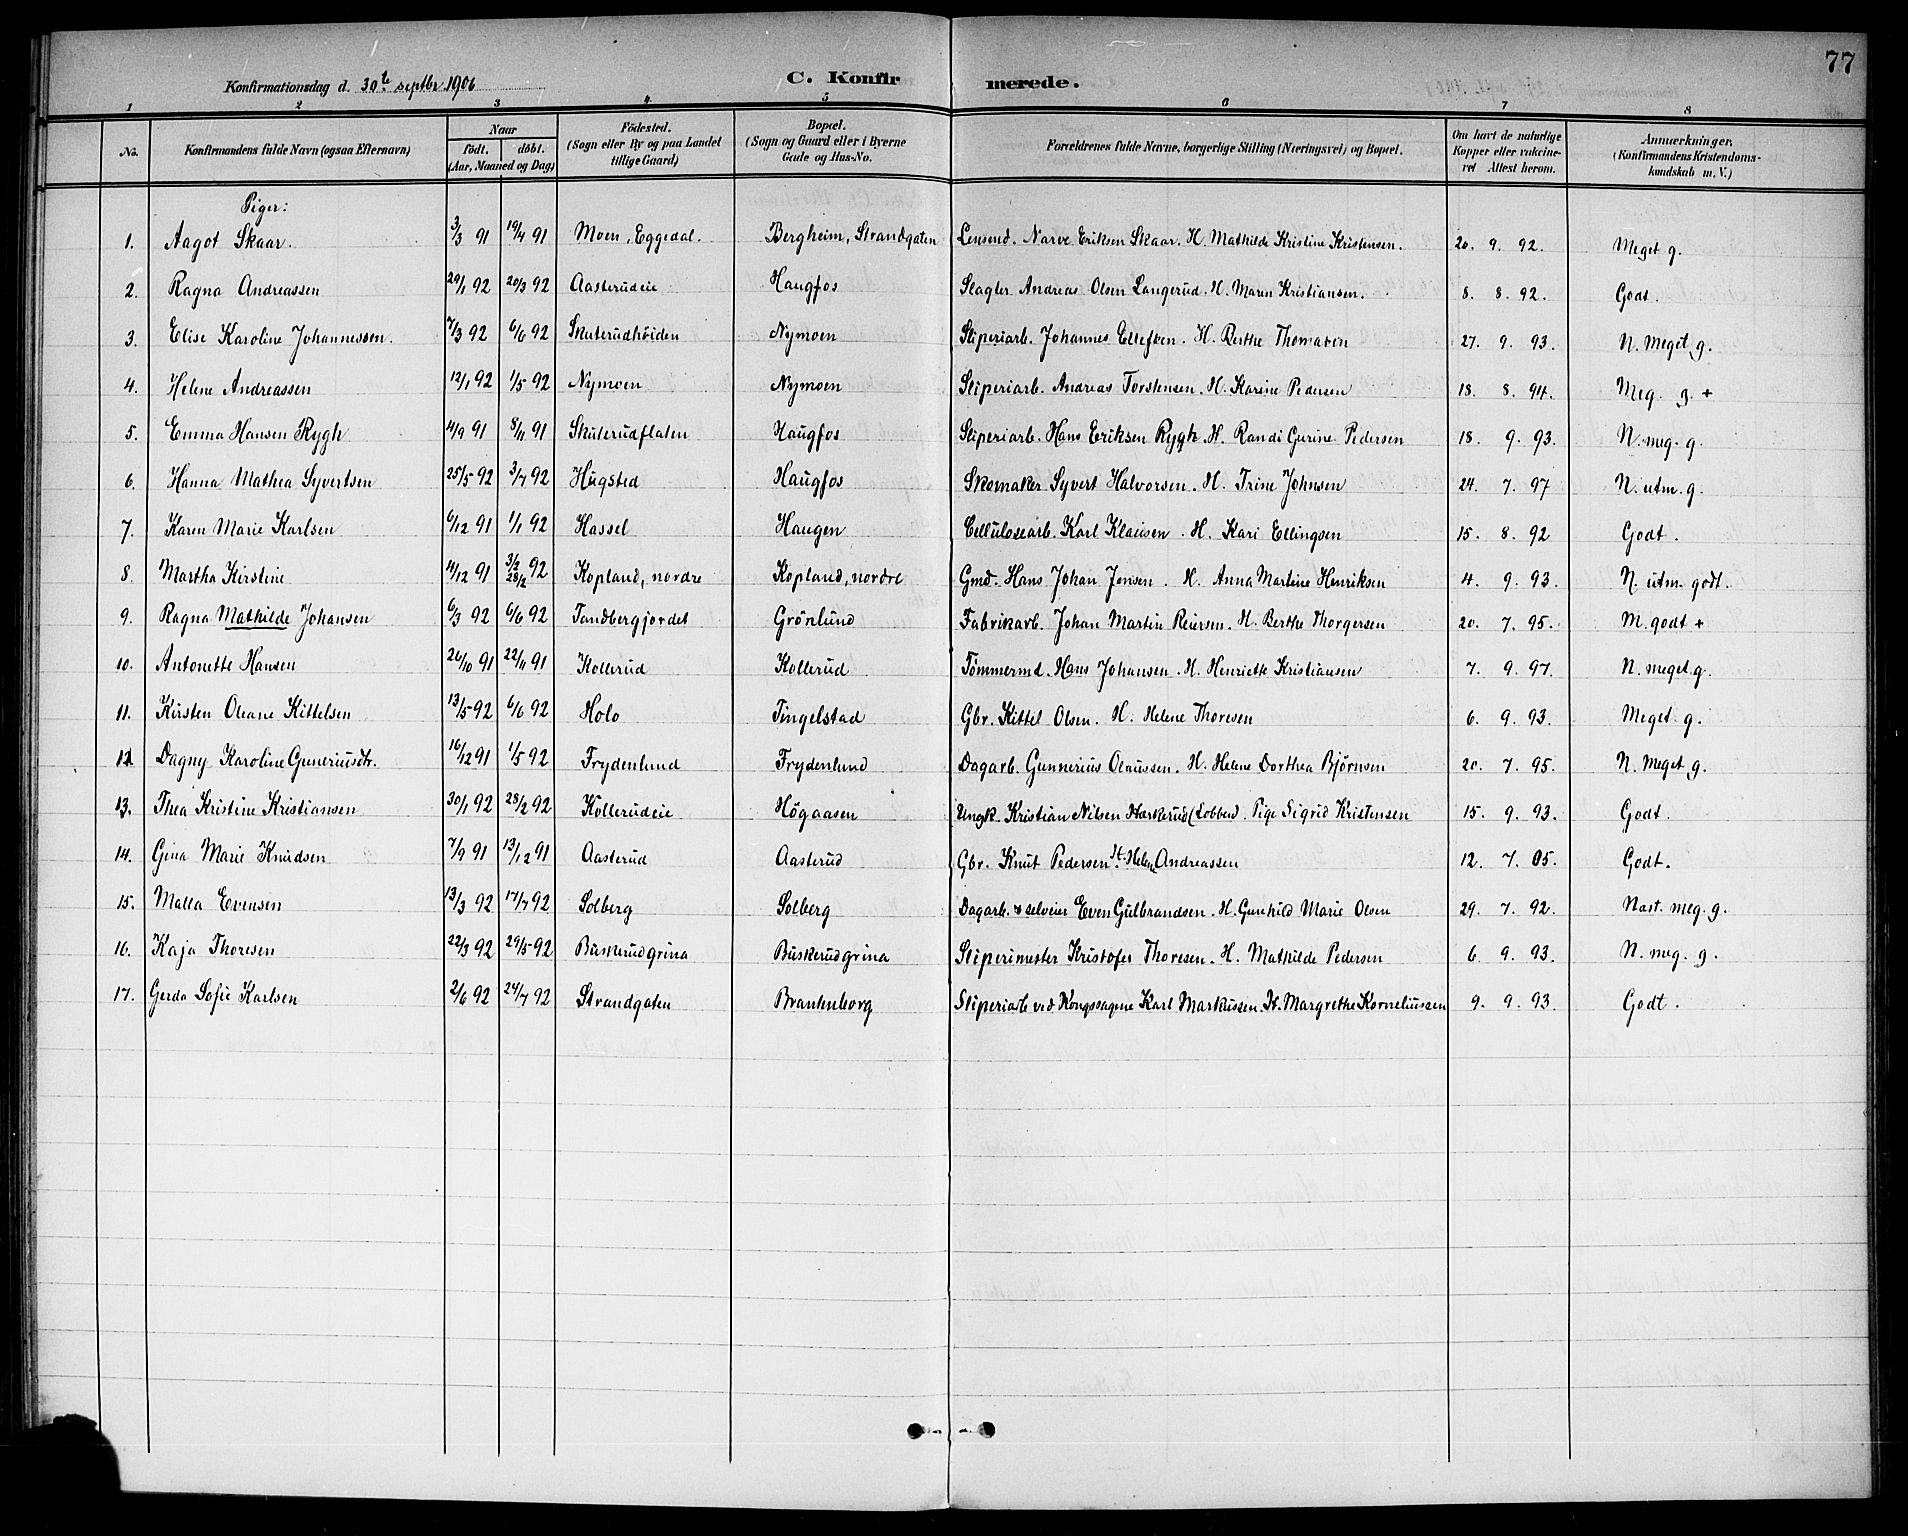 77
Konfirmationsdag d. 30te septbr 1906
C. Konfirmerede.
1 2 3 4 5 6 7 8
No. | Konfirmandens fulde Navn (ogsaa Efternavn) | Naar födt. döbt. (Aar, Maaned og Dag) | Födested. (Sogn eller By og paa Landet tillige Gaard) | Bopæl. (Sogn og Gaard eller i Byerne Gade og Hus-No. | Forældrenes fulde Navne, borgerlige Stilling (Næringsvei) og Bopæl. | Om havt de naturlige Kopper eller vakcineret Attest herom. | Anmærkninger. (Konfirmandens Kristendomskundskab m. V.)
Piger:
1. Aagot Skaar. 3/3 91 19/4 91 Moen, Eggedal. Bergheim, Strandgaten Lensmd. Narve Eriksen Skaar. H. Mathilde Kristine Kristensen. 20. 9. 92. Meget g.
2. Ragna Andreassen 29/1 92 20/3 92 Aasterudeie Haugfos Slagter Andreas Olsen Langerud. H. Maren Kristiansen. 8. 8. 92. Godt.
3. Elise Karoline Johannessen. 7/3 92 6/6 92 Skuterudhöiden Nymoen Sliperiarb. Johannes Ellefsen. H. Berthe Thomasen 27. 9. 93. N. meget g.
4. Helene Andreassen 12/1 92 1/5 92 Nymoen Nymoen Sliperiarb. Andreas Torstensen. H. Karine Pedersen 18. 8. 94. Meg. g. +
5. Emma Hansen Rygh 4/9 91 8/11 91 Skuterudflaten Haugfos Sliperiarb. Hans Eriksen Rygh. H. Randi Gurine Pedersen 18. 9. 93. N. meg. g.
6. Hanna Mathea Syvertsen 25/5 92 3/7 92 Hugsted Haugfos Skomaker Syvert Halvorsen. H. Trine Johnsen 24. 7. 97 N. utm. g.
7. Karen Marie Karlsen 6/12 91 1/1 92 Hassel Haugen Cellulosearb. Karl Klausen. H. Kari Ellingsen 15. 8. 92 Godt.
8. Martha Kirstine 4/12 91 3/2 28/2 92 Kopland, nordre Kopland, nordre Gmd. Hans Johan Jensen. H. Anna Martine Henriksen 4. 9. 93. N. utm. godt.
9. Ragna Mathilde Johansen 6/3 92 6/6 92 Tandbergjordet Grönlund Fabrikarb. Johan Martin Reiersen. H. Berthe Thorgersen 20. 7. 95. M. godt +
10. Antonette Hansen 26/10 91 22/11 91 Kollerud Kollerud Tömmermd. Hans Johansen. H. Henriette Kristiansen 7. 9. 97. N. meget g.
11. Kirsten Oleane Kittelsen 13/5 92 6/6 92 Holo Tingelstad Gbr. Kittil Olsen. H. Helene Thoresen 6. 9. 93. Meget g.
12. Dagny Karoline Gunneriusdtr. 16/12 91 1/5 92 Frydenlund Frydenlund Dagarb. Gunnerius Olaussen. H. Helene Dorthea Bjørnsen 20. 7. 95. N. meget g.
13. Thea Kristine Kristiansen 30/1 92 28/2 92 Kollerudeie Högaasen Ungk. Kristian Nilsen Pige Sigrid Kristensen 15. 9. 93. Godt.
14. Gina Marie Knudsen 7/9 91 13/12 91 Aasterud Aasterud Gbr. Knut Pedersen H. Helene Andreassen 12. 7. 05. Godt.
15. Malla Evensen 13/3 92 17/7 92 Solberg Solberg Dagarb. & selveier Even Gulbrandsen. H. Gunhild Marie Olsen 29. 7. 92. Nast. meg. g.
16. Kaja Thoresen 22/3 92 29/5 92 Buskerudgrina Buskerudgrina Sliperimester Kristofer Thoresen. H. Mathilde Pedersen 6. 9. 93. N. meg. g.
17. Gerda Sofie Karlsen 2/6 92 24/7 92 Strandgaten Brantenborg Sliperiarb ved Kongssagene Karl Markussen. H. Margrethe Korneliussen 9. 9. 93. Godt.